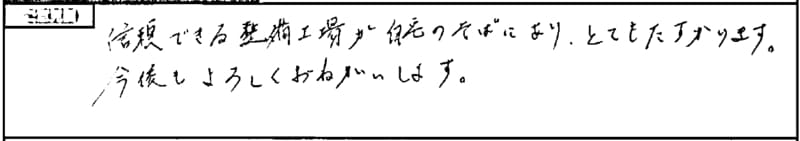 信頼できる整備工場が自宅のそばにあり、とてもたすかります。
今後もよろしくおねがいします。